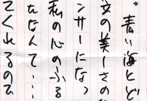 。青い海とど
文の美しさの
ンサーになっ
私の心のふる
たなんて・・・
てくれるので